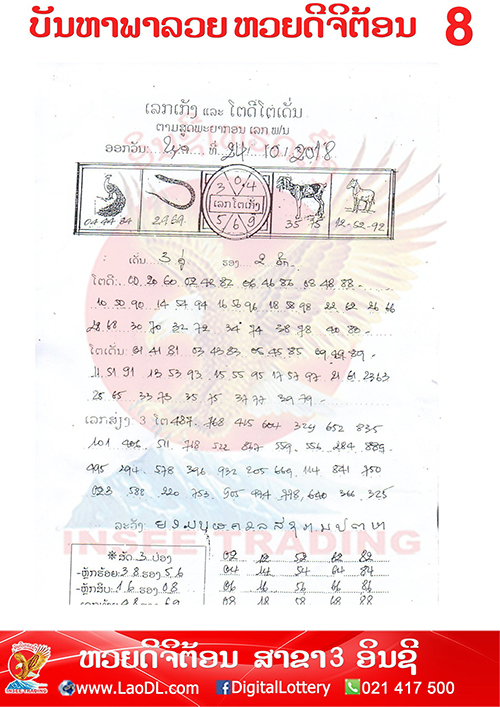 ບັນຫາພາລວຍ ຫວຍດີຈິຕ້ອນ 8
ເລກເກັງ ແລະ ໂຕດີໂຕເດັ່ນ
ຕາມສູດພະຍາກອນ ເລກ ພ/ນ
ອອກວັນ: ທີ 24/10/2018
3 0 4
ເລກໂຕເກັງ
5 6 9
04 44 84
24 64
35 75
12-52-92
ເດັ່ນ 3 ຮອງ 2
ໂຕດີ: 00 20 60 02 42 82 06 46 86 08 48 88
10 50 90 14 54 94 16 56 96 18 58 98 22 62 26 66
28 68 30 70 32 72 34 74 38 78 40 80
ໂຕເດັ່ນ: 01 41 81 03 43 83 05 45 85 09 49 89
11 51 91 13 53 93 15 55 95 17 57 97 21 61 23 63
25 65 33 73 35 75 37 77 39 79
ເລກສ່ຽງ 3 ໂຕ 437 768 415 604 329 652 835
101 406 511 718 522 867 559 556 284 889
495 294 578 396 932 205 669 114 841 750
023 588 220 753 905 974 798 640 366 325
ລະວັງ:
INSEE TRADING
※ ລັດ 3 ປ່ອງ
-ຫຼັກຮ້ອຍ: 3 8 ຮອງ 5 6
-ຫຼັກສິບ: 1 6 ຮອງ 0 8
02 12 52 62 82
04 14 54 64 84
06 16 56 66 86
08 18 58 68 88
ຫວຍດີຈິຕ້ອນ ສາຂາ3 ອິນຊີ
INSEE TRADING
www.LaoDL.com DigitalLottery 021 417 500